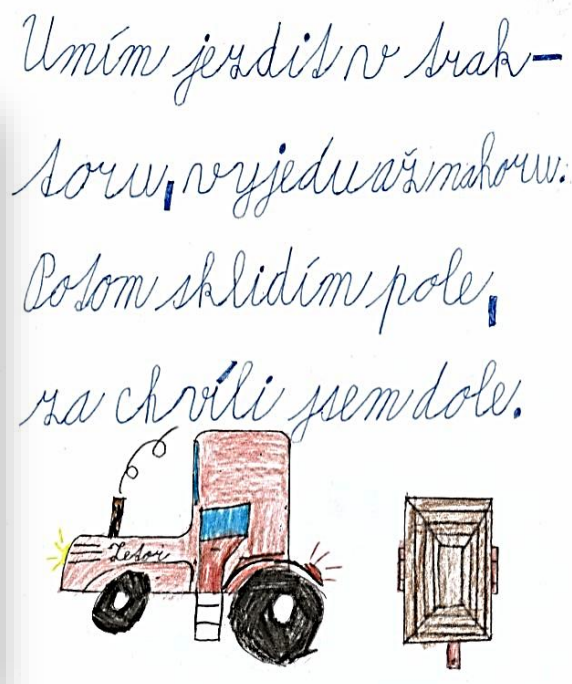 Umím jezdit v trak-
toru, vyjedu až nahoru.
Potom sklidím pole,
za chvíli jsem dole.
Zetor